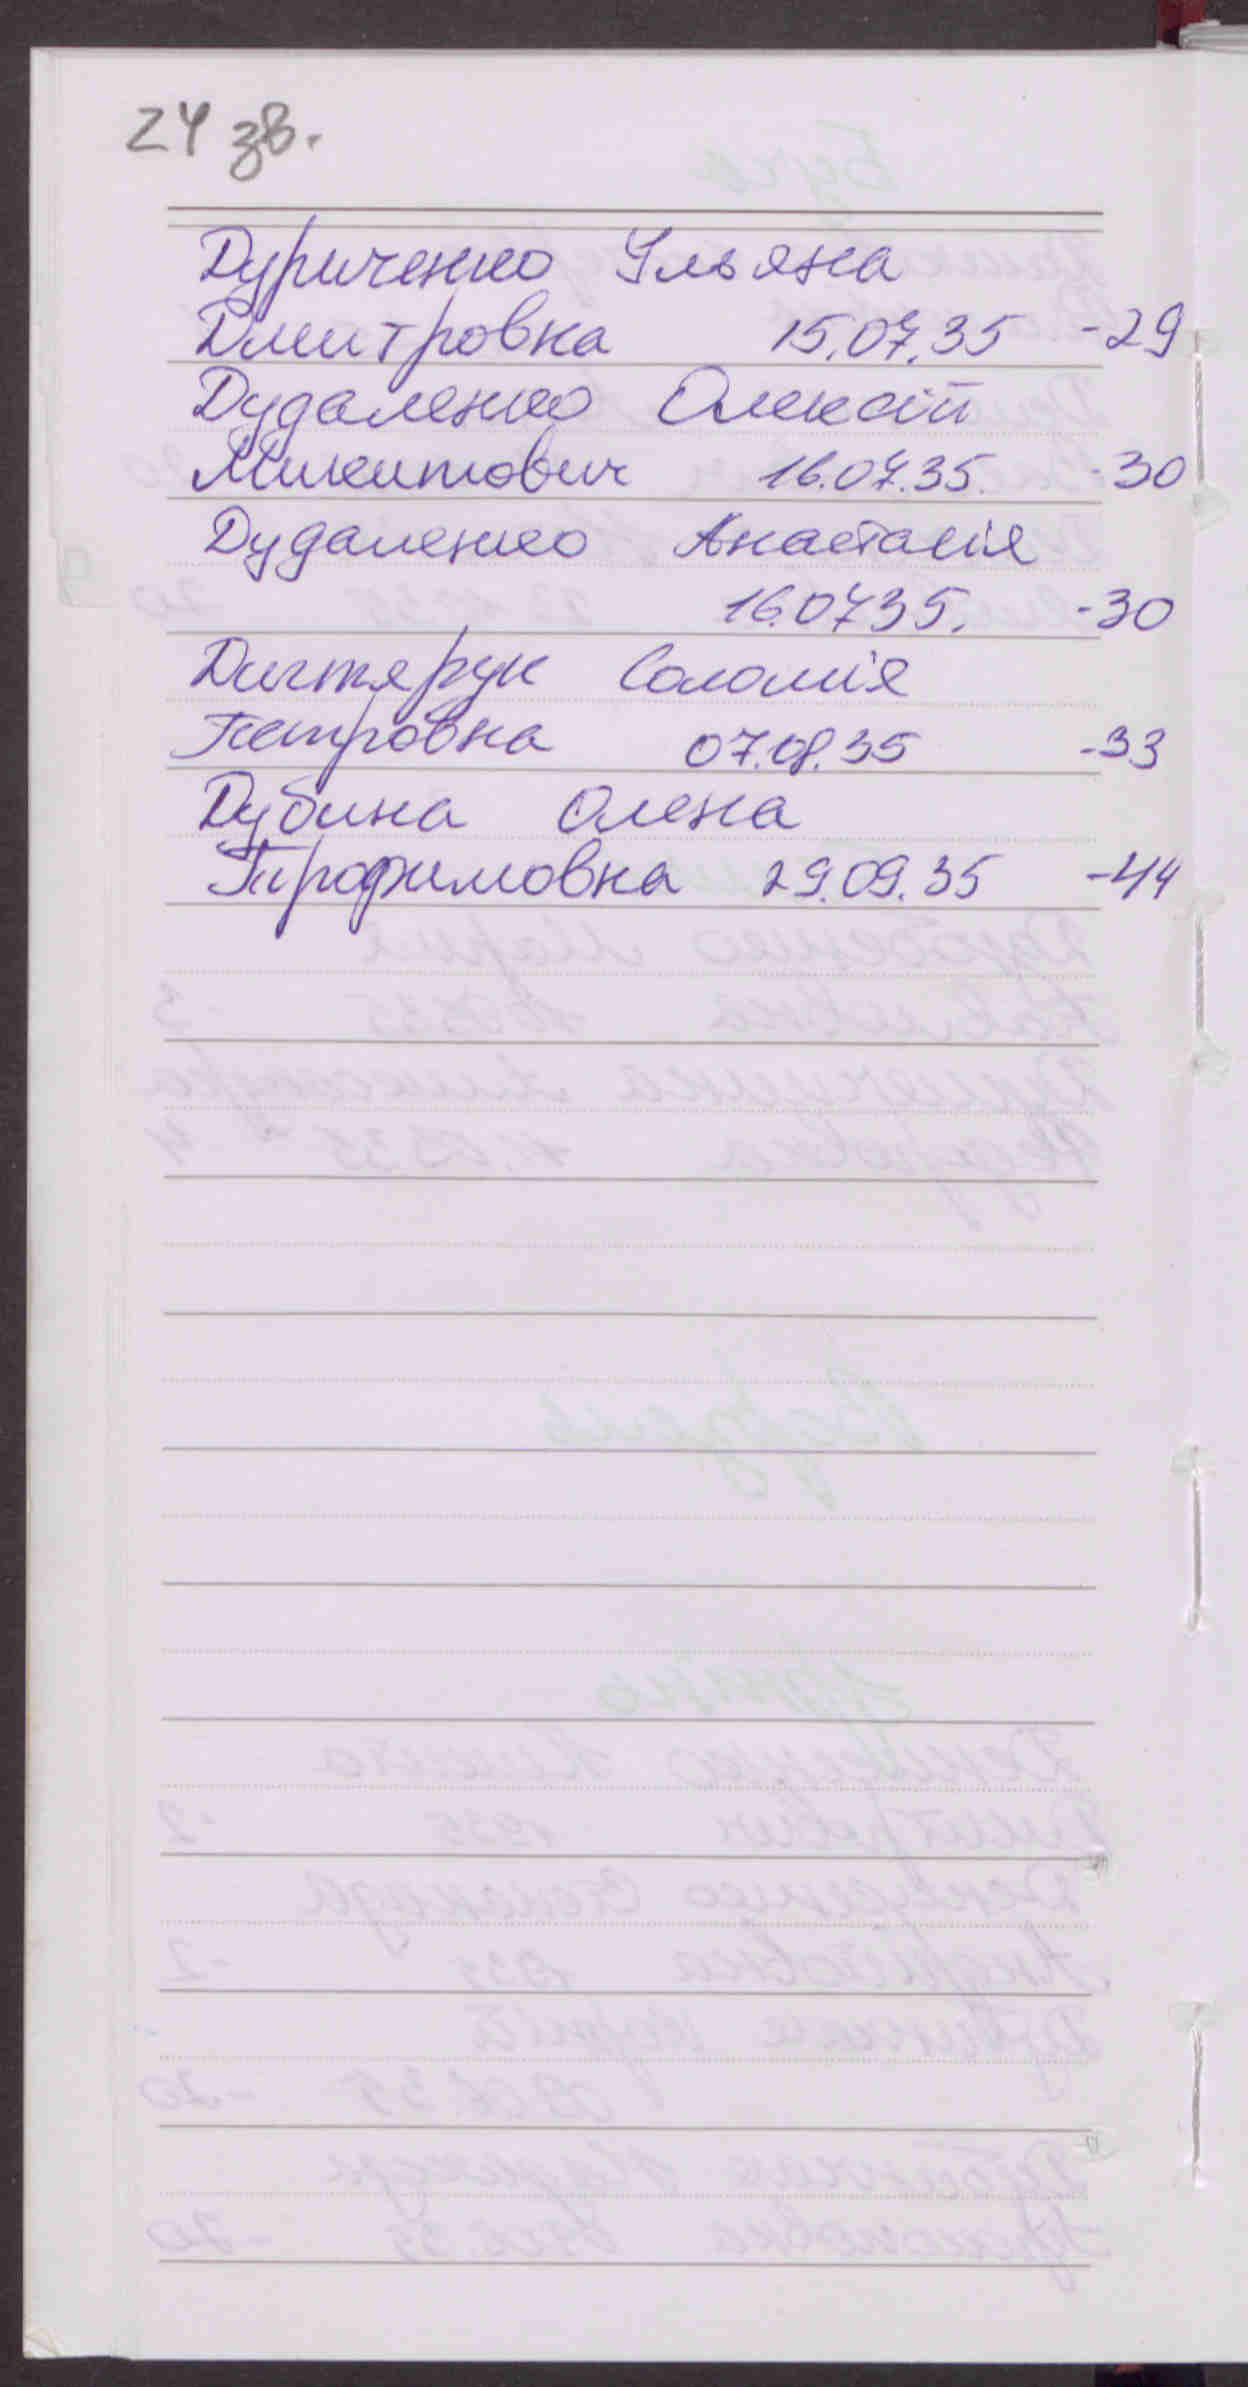 24 зв.
Дуриченко Ульяна
Дмитровка 15.07.35 -29
Дудаленко Олексій
Микитович 16.07.35. -30
Дудаленко Анастасія
16.07.35. -30
Дигтярук Соломія
Петровна 07.08.35 -33
Дубина Олена
Трофимовка 29.09.35 -44